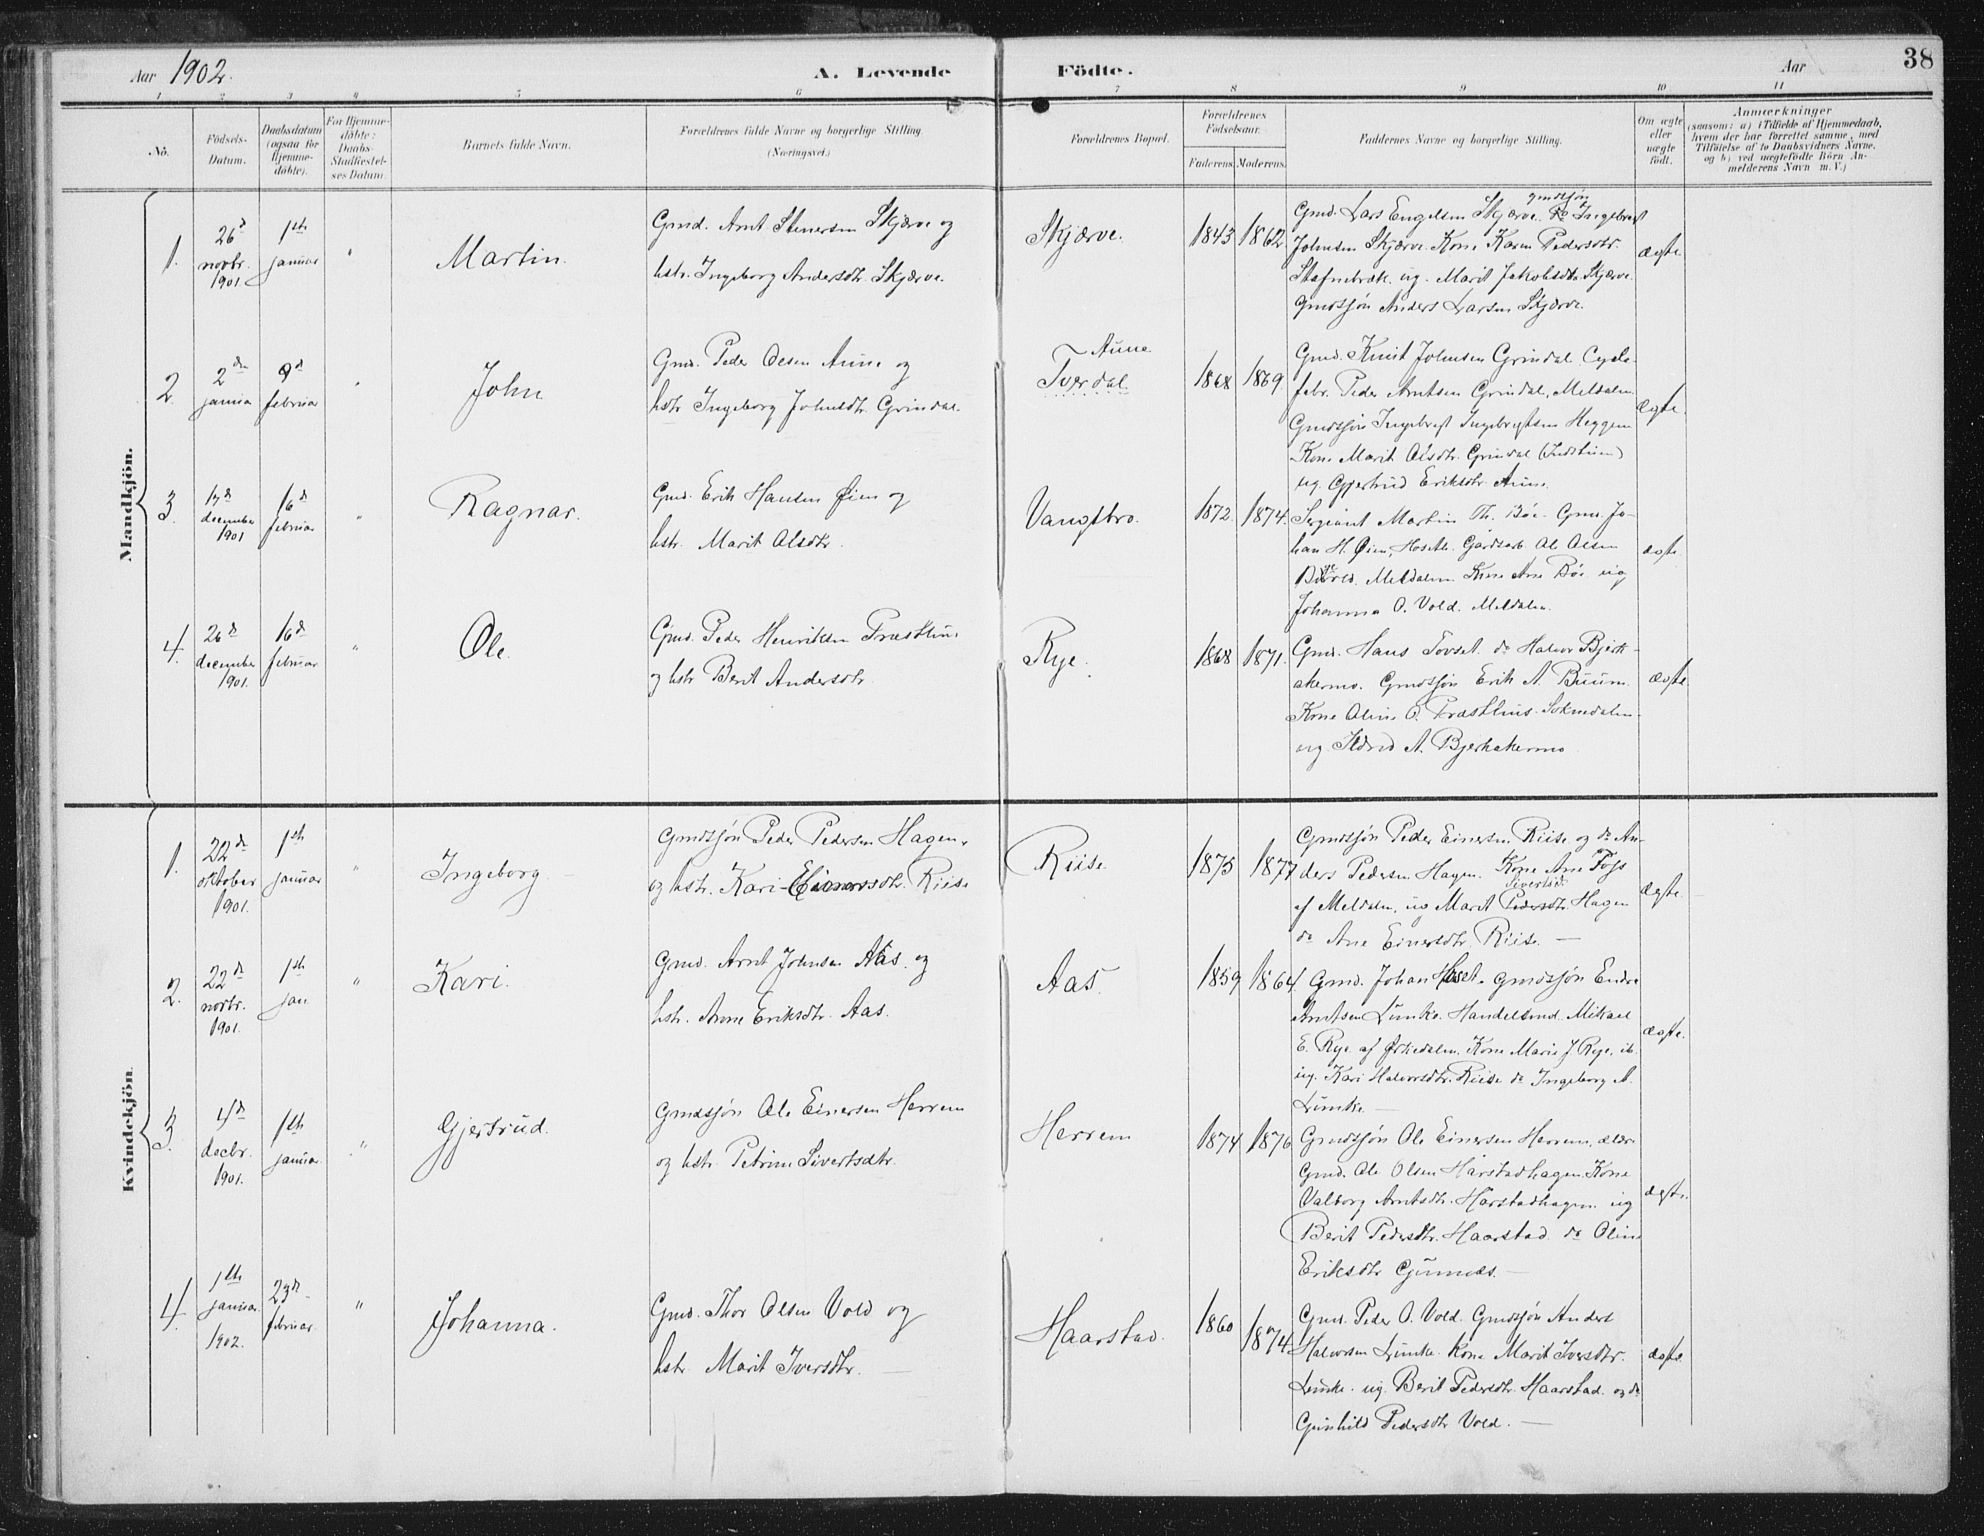 Aar 1902.
A. Levende
Födte.
Aar
38
1 2 3 4 5 6 7 8 9 10 11
No.
Födsels-
Datum.
Daabsdatum
(ogsaa for
Hjemme-
döbte).
For Hjemme-
döbte:
Daabs-
Stadfæstel-
ses Datum.
Barnets fulde Navn.
Forældrenes fulde Navne og borgerlige Stilling.
(Næringsvei.)
Forældrenes Bopæl.
Forældrenes
Födselsaar.
Faderens. Moderens.
Faddernes Navne og borgerlige Stilling.
Om ægte
eller
uægte
födt.
Anmærkninger
(saasom: a) i Tilfælde af Hjemmedaab,
hvem der har forrettet samme, med
Tilföielse af to Daabsvidners Navne,
og b) ved uægtefödte Börn An-
melderens Navn m. V.)
Mandkjön.
1.
26d
novbr.
1901
1ste
januar
"
Martin.
Gmd. Arnt Stenersen Skjærve og
hstr. Ingeborg Andersdtr. Skjærve.
Skjærve.
1843 1862.
gmdsjøn
Gmd. Lars Engelsen Skjærve. Ingebrigt
Johnsen Skjærve. Kone Karen Pedersdtr.
Stafnebræk. ug. Marit Jakobsdtr. Skjærve.
Gmdssjön Anders Larsen Skjærve.
ægte
2.
2den
janua
9d
februar
"
John
Gmd. Peder Olsen Aune og
hstr. Ingeborg Johnsdtr. Grindal.
Aune
Tverdal.
1868 1869
Gmd. Knut Johnsen Grindal. Cycle-
fabr. Peder Arntsen Grindal, Meldalen
Gmdssjön Ingebrigt Ingebrigtsen Heggem
Kone Marit Olsdtr. Grindal
ug. Gjertrud Eriksdtr. Aune.
ægte.
3.
17d
december
1901
16d
februar
"
Ragnar.
Gmd. Erik Hansen Øien og
hstr. Marit Olsdtr.
Vangsbro.
1872. 1874.
Sergiant Martin Th. Böe. Gmd. Jo-
han H. Øien, Gardsarb. Ole Olsen
Meldalen Kone Ane Böe ug
Johanna O. Vold. Meldalen.
ægte.
4.
26d
december
1901.
16d
februar
"
Ole.
Gmd. Peder Henriksen Præsthus
og hstr. Berit Andersdtr.
Rye.
1868 1871.
Gmd. Hans Tovset. do Halvor Bjerk-
akermo. Gmdssjön Erik A. Buum
Kone Oline O. Præsthus. Soknedalen.
ug Ildrid A. Bjerkakermo
ægte.
Kvindekjön.
1.
22de
oktober
1901.
1ste
januar
"
Ingeborg.
Gmdssjön Peder Pedersen Hagen,
og hstr. Kari Einersdtr. Riise
Riise.
1875 1877
Gmdssjön Peder Einersen Riise og do An-
ders Pedersen Hagen. Kone Ane Foss
Sivertsd.
af Meldalen, ug Marit Pedersdtr. Hagen
do Ane Einersdtr. Riise. —
ægte.
2.
22de
novbr.
1901.
1ste
jan
"
Kari.
Gmd. Arnt Johnsen Aas. og
hstr. Anne Eriksdtr. Aas.
Aas.
1859 1864
Gmd. Johan Hoset. Gmdssjön Endre
Arntsen Lümke. Handelsmd. Mikael
E. Rye. af Ørkedalen, Kone Marie J. Rye. ib.
ug. Kari Halvorsdtr. Riise do Ingeborg A.
Lümke. —
ægte.
3.
4d
decbr.
1901.
1ste
januar.
"
Gjertrud.
Gmdssjön Ole Einersen Herrem
og hstr. Petrine Sivertsdtr.
Herrem
1874 1876
Gmdssjön Ole Einersen Herrem, ældr.
Gmd. Ole Olsen Harstadhagen. Kone
Valborg Arntsdtr. Harstadhagen ug
Berit Pedersdtr. Haarstad do Oline
Eriksdtr Gjunnæs. —
ægte.
4.
1ste
januar.
1902.
23de
februar.
"
Johanna.
Gmd. Thor Olsen Vold og
hstr. Marit Iversdtr. —
Haarstad.
1860 1874
Gmd. Peder O. Vold. Gmdssjön Anders
Halvorsen Lümke. Kone Marit Iversdtr.
Lümke. ug. Berit Pedersdtr. Haarstad. og do
Gunhild Pedersdtr Vold. —
ægte